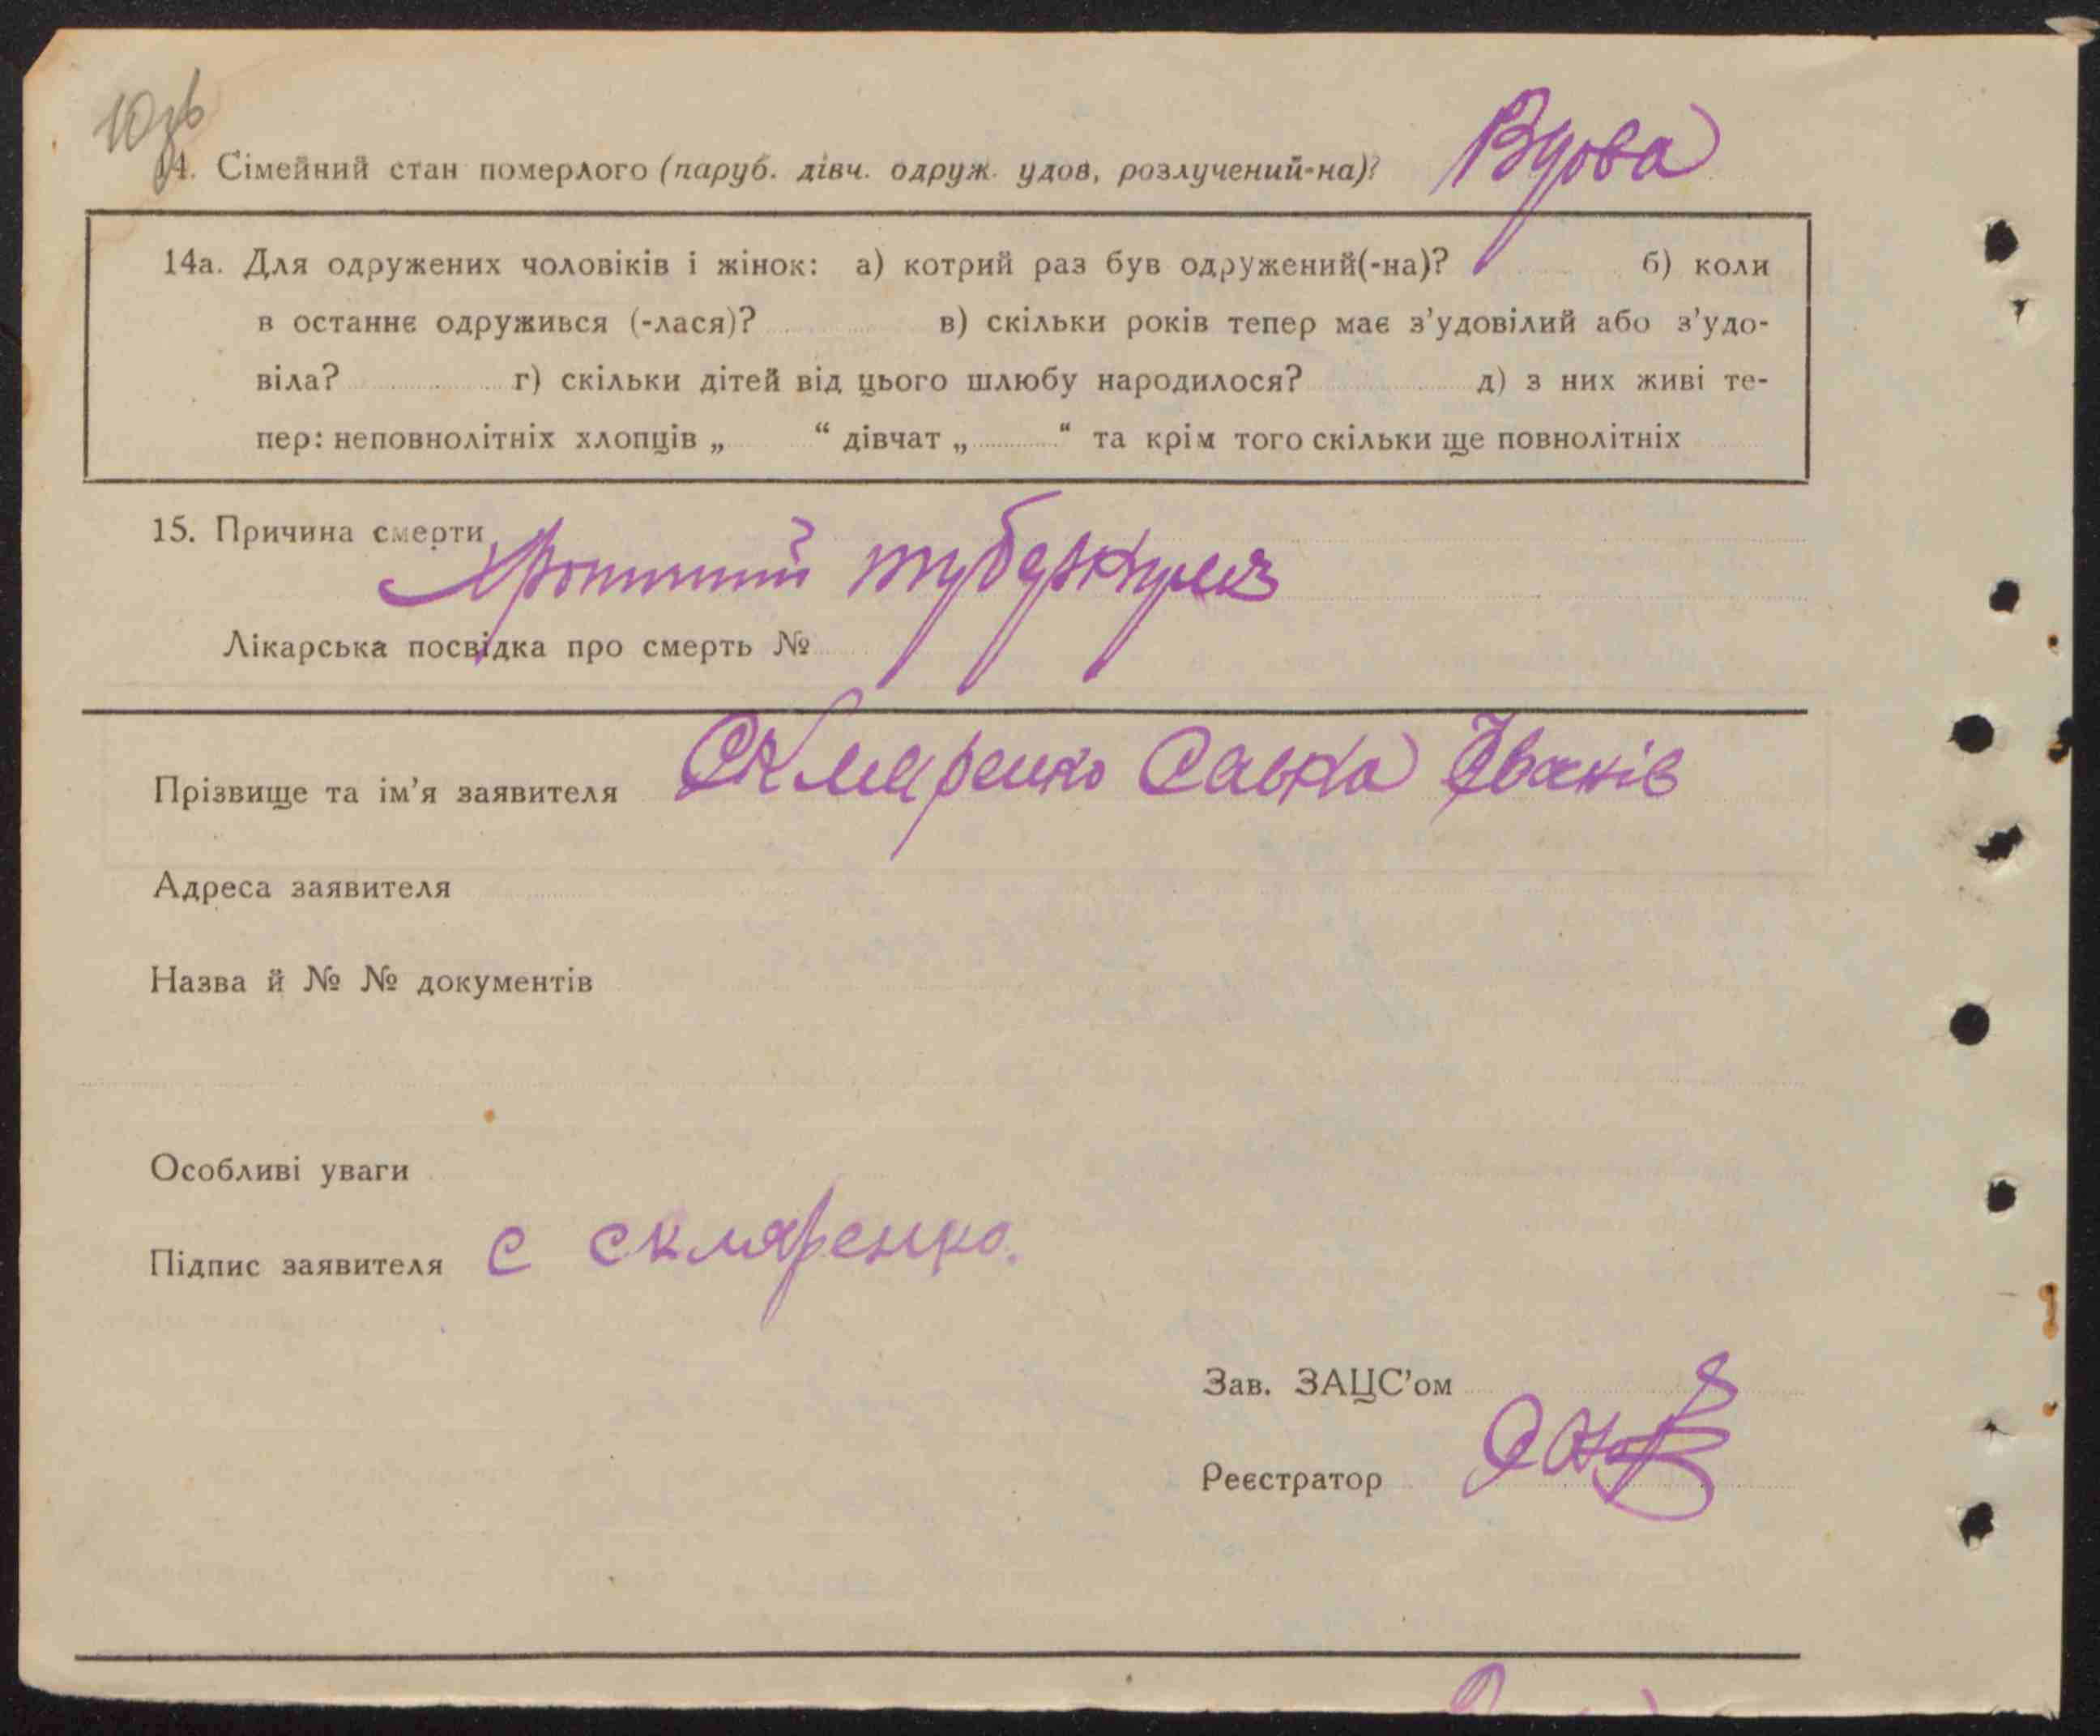 10зв
14. Сімейний стан померлого (паруб. дівч. одруж. удов, розлучений-на)? Вдова
14а. Для одружених чоловіків і жінок: а) котрий раз був одружений(-на)? б) коли
в останнє одружився (-лася)? в) скільки років тепер має з'удовілий або з'удо-
віла? г) скільки дітей від цього шлюбу народилося? д) з них живі те-
пер: неповнолітніх хлопців „ “ дівчат „ “ та крім того скільки ще повнолітніх
15. Причина смерти
Хронічний туберкульоз
Лікарська посвідка про смерть №
Прізвище та ім'я заявителя Скляренко Савка Іванів
Адреса заявителя
Назва й № № документів
Особливі уваги
Підпис заявителя С Скляренко.
Зав. ЗАЦС'ом
Реєстратор